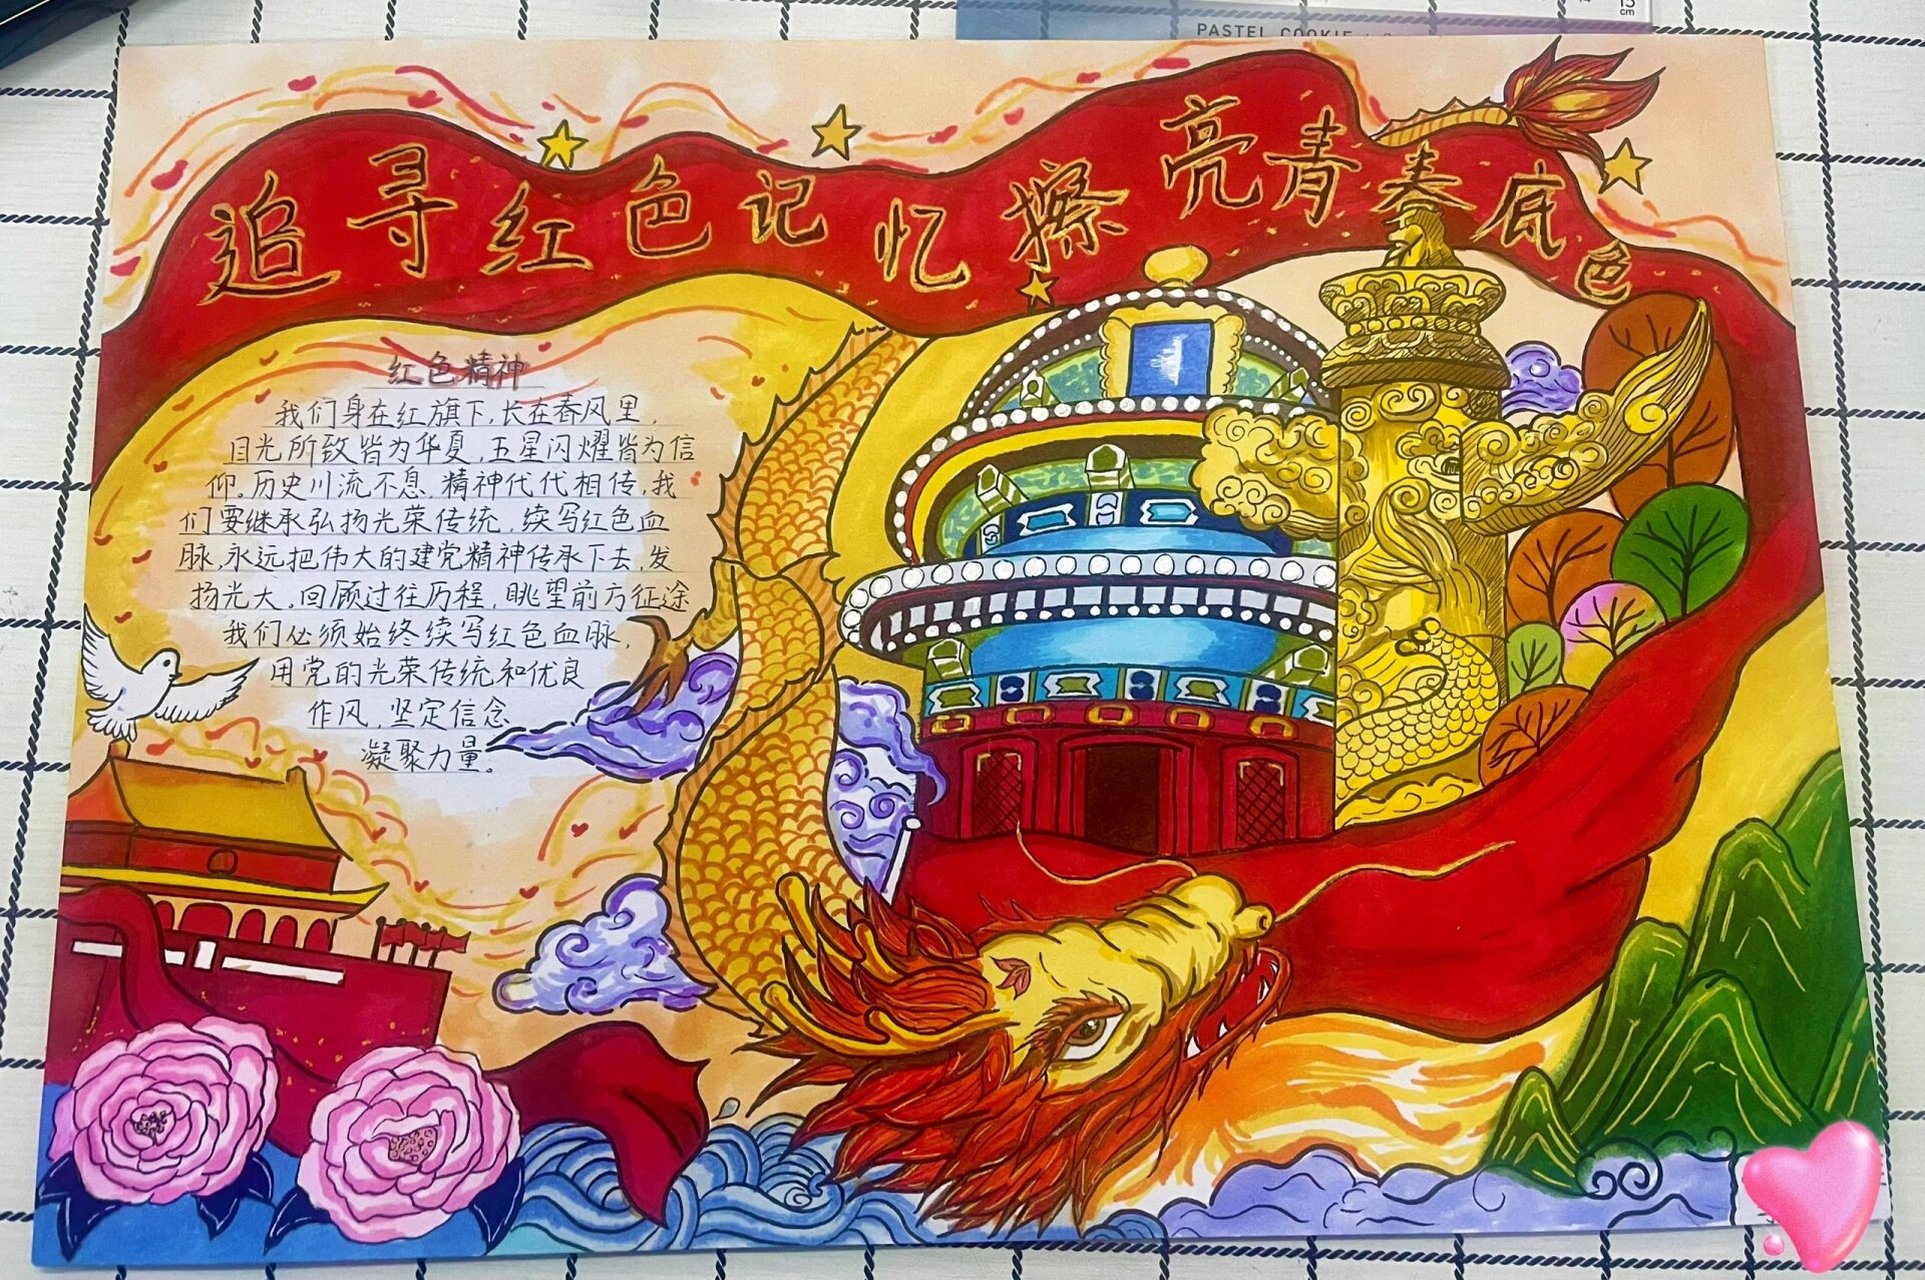 PASTEL COOKIE
15
cm
追寻红色记忆擦亮青春底色
红色精神
我们身在红旗下,长在春风里,
目光所致皆为华夏,五星闪耀皆为信
仰。历史川流不息,精神代代相传,我
们要继承弘扬光荣传统,续写红色血
脉,永远把伟大的建党精神传承下去,发
扬光大。回顾过往历程,眺望前方征途
我们必须始终续写红色血脉,
用党的光荣传统和优良
作风,坚定信念
凝聚力量。